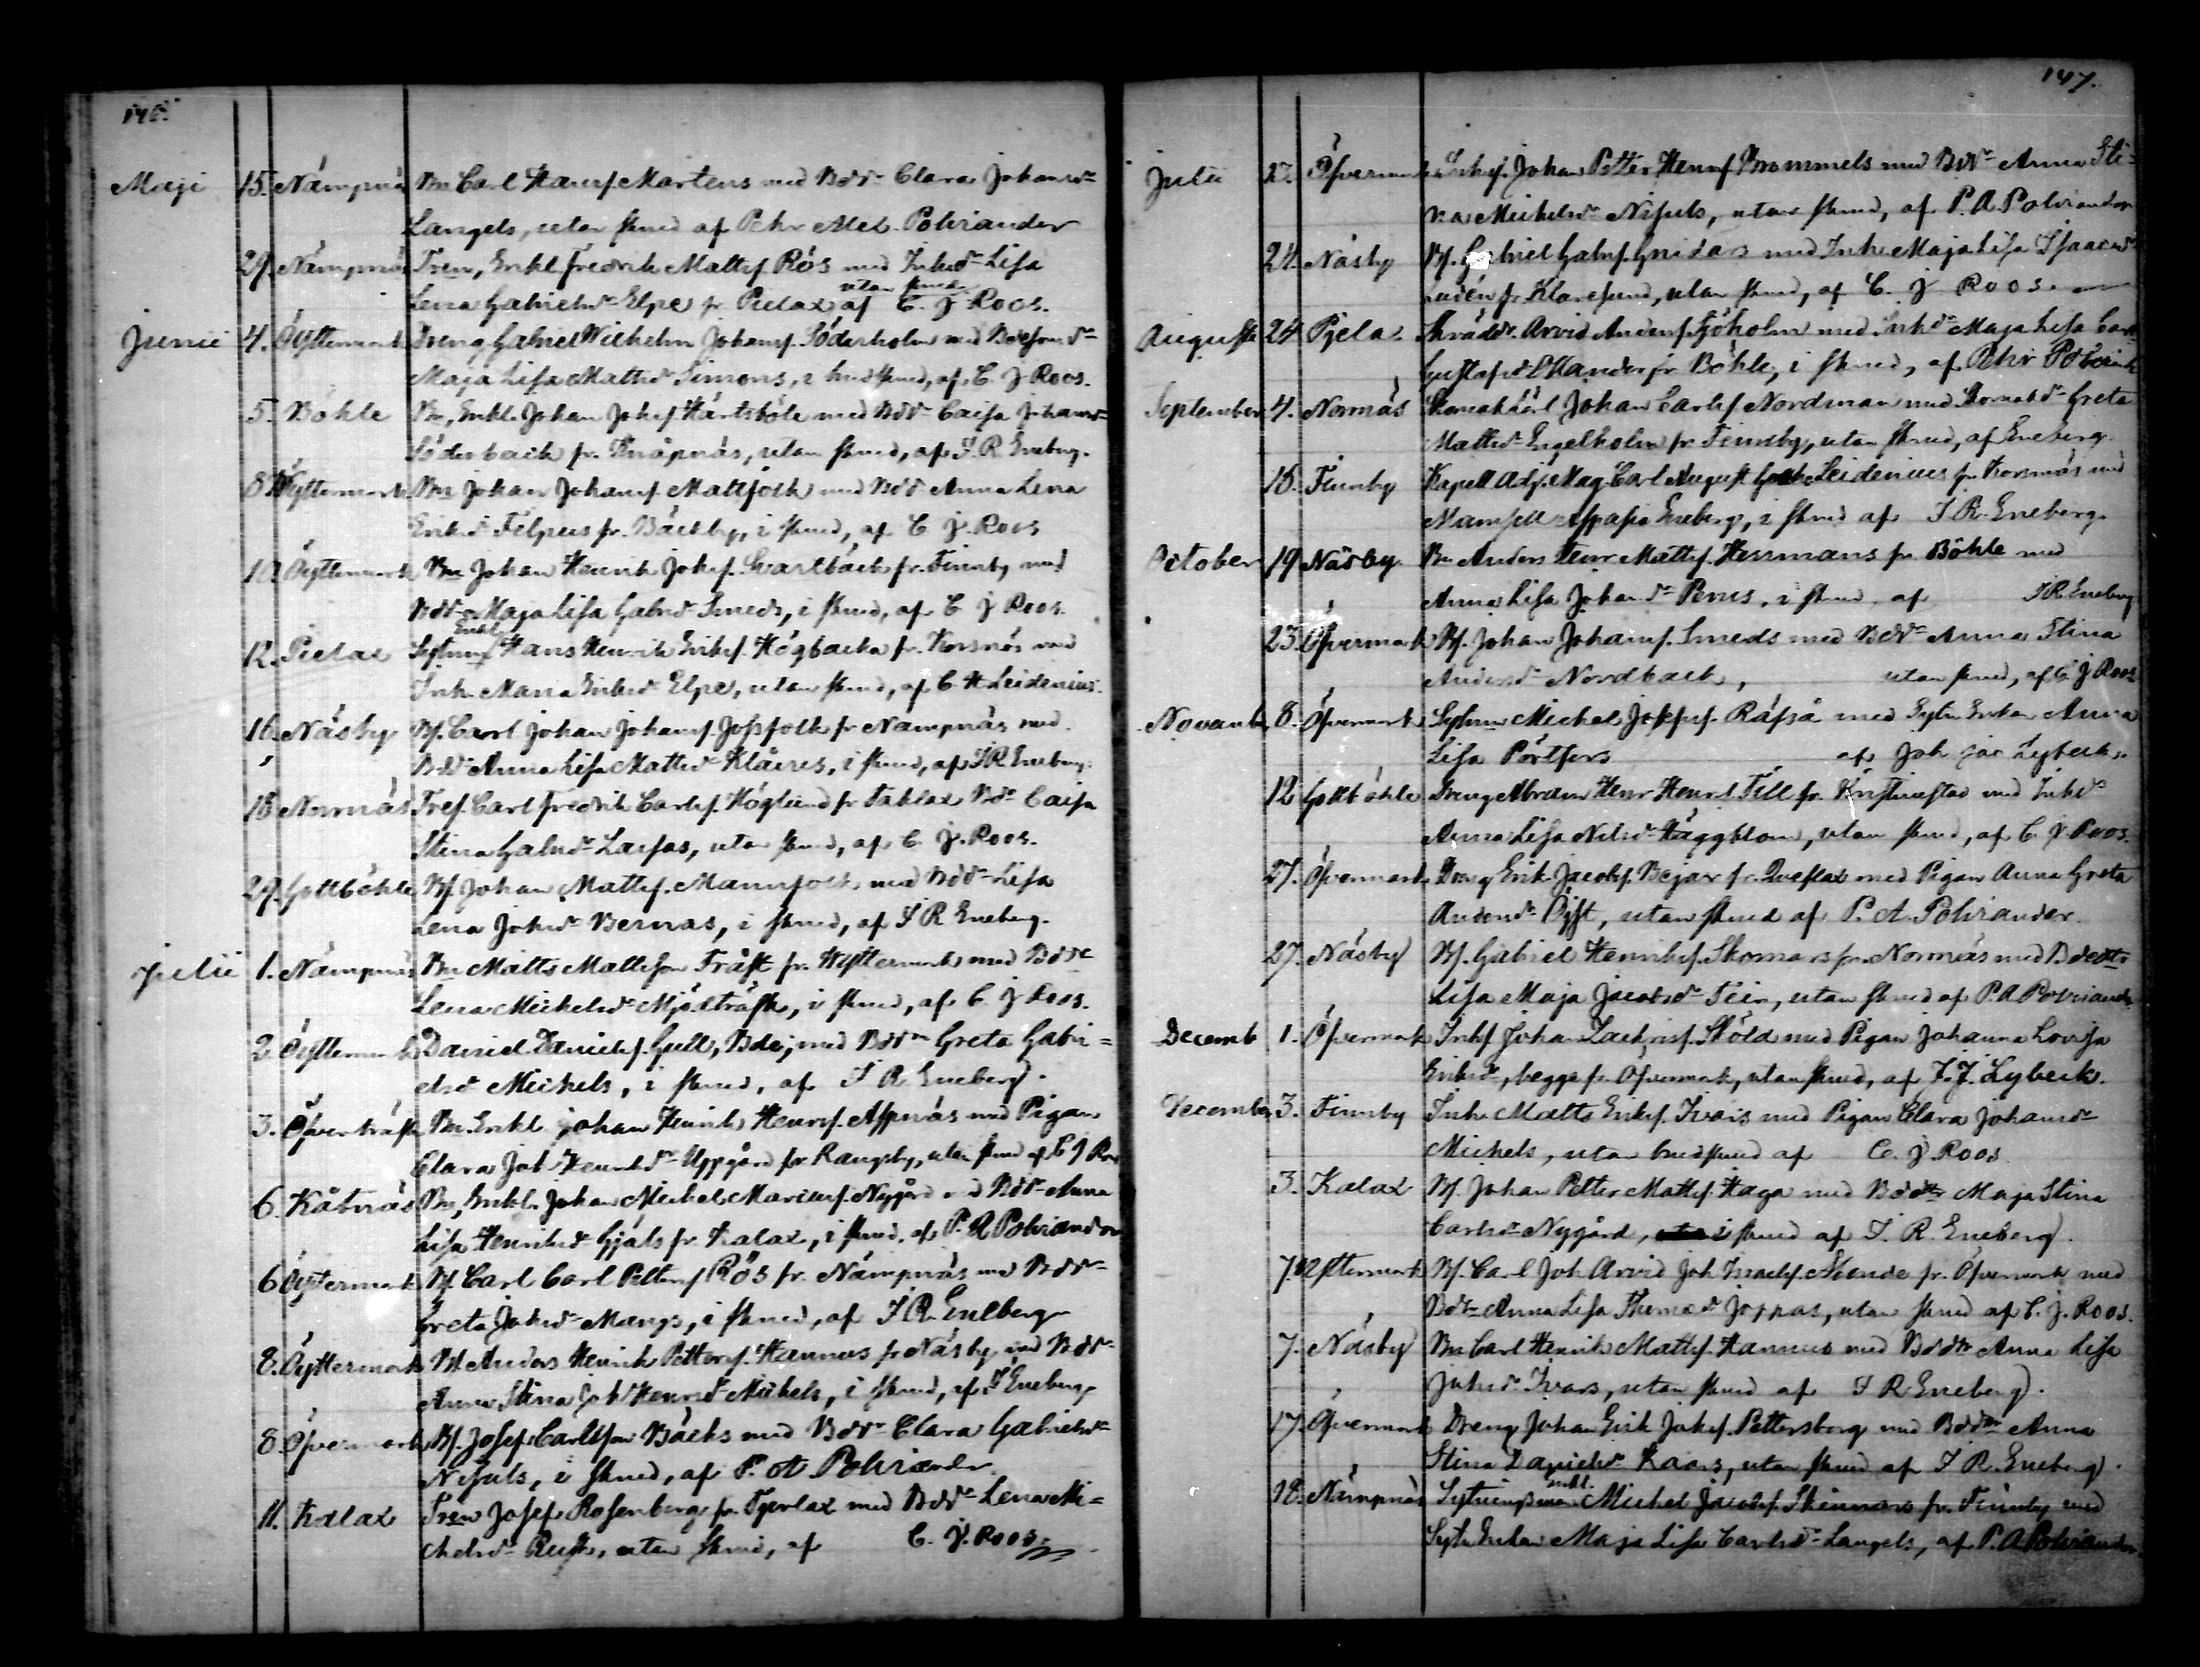 146.
Maji 15. Nämpnäs Bn Carl Henrsf. Martens med Bdr Clara Johansdr
Langels, utan skrud af Pehr Alel. Polviander
29. Nämpnäs Tren, Enkl Fredrik Mattsf. Rös med Inhdr Lisa
Lena Gabrielsdr Elpe fr Pielax utan skrud af C. J. Roos.
Junii 4. Öyttermark Dreng Gabriel Wilhelm Johansf. Söderholm med Bdesondr
Maja Lisa Mattsdr Simons, i brudskrud, af C. J Roos.
5. Böhle Bn, Enkl. Johan Johsf Härtsböle med Bdr Caisa Johansdr
Söderback fr. Knåpnäs, utan skrud, af I. R. Eneberg.
8 Yttermark Bn Johan Johansf. Mattfolk med Bdr Anna Lena
Eriksdr Filpus fr. Backby, i skrud, af C J. Roos
10 Öyttermark Bn Johan Henrik Johsf. Svartback fr. Finnby med
Bdr Maja Lisa Gabrdr Smeds, i skrud, af C J Roos.
12. Pielax Sytnm Enkl Hans Henrik Eriksf. Högbacka fr. Korsnäs med
Inh. Maria Eriksdr Elpe, utan skrud, af C. H Leidenius.
16. Näsby Bf. Carl Johan Johansf. Jossfolk fr Nämpnäs med
Bdr Anna Lisa Mattsdr Klåvus, i skrud, af I R Eneberg.
18 Nornäs Tref. Carl Fredrik Carlsf. Höglund fr Taklax Bdr Caisa
Stina Gabrdr Larsas, utan skrud, af C. J. Roos.
29. Gottböhle Bf Johan Mattsf. Mannfolk med Bdr Lisa
Lena Johsdr Bernas, i skrud, af I R Eneberg.
Julii 1. Nämpnäs Bn Matts Mattsson Träsk fr. Yttermark med Bdr
Lena Michelsdr Mjölträsk, i skrud, af C. J Roos.
2 Öyttermark Daniel Danielsf. Gull, Bde, med Bdr Greta Gabri=
elsdr Michels, i skrud, af I R. Eneberg.
3. Öfverträsk Bn. Enkl Johan Henrik Henrsf. Aspnäs med Pigan
Clara Joh Henriksdr Uppgård fr Rangsby, utan skrud af C J Roos
6. Kåtnäs Bn, Enkl. Johan Michel Mariaef. Nygård med Bdr Anna
Lisa Henriksdr Gjäls fr Kalax, i skrud, af P. A Polviander
6 Öyttermark Bf Carl Carl Pettersf Rös fr. Nämpnäs med Bdr
Greta Johsdr Mangs, i skrud, af I. R. Eneberg
8. Öyttermark Bf Anders Henrik Pettersf. Hannus fr Näsby med Bdr
Anna Stina Joh Henrsdr Michels, i skrud, af I Eneberg
8. Öfvermark Bf. Josef Carlsson Bäcks med Bdr Clara Gabrielsdr
Nisuls, i skrud, af P. A Polviander
11. Kalax Tren Josef Rosenberg fr. Tjerlax med Bdr Lena Mi=
chelsdr Rusk, utan skrud, af C. J. Roos.
147.
Julii 23. Öfvermark Inhf. Johan Petter Henrsf Brommels med Bdr Anna Sti=
na Michelsdr Nisuls, utan skrud, af P. A. Polviander
24. Näsby Bf. Gabriel Gabrsf. med Inh. Maja Lisa Isaacsdr
fr Klaresund, utan skrud, af C. J Roos.
Augusti 24 Pjelax Skrädd. Arvid Andersf. Sjöholm med Inhdr Maja Lisa Carl
Gustafsdr fr Böhle, i skrud, af Pehr
September 4. Nornäs Johan Carlsf Nordman med Greta
Mattsdr Engelholm fr Finnby, utan skrud, af Eneberg.
18. Finnby Kapell Adj. Mag. Carl August Leidenius fr Korsnäs med
Mamsell Aspasia Eneberg, i skrud af I R. Eneberg.
October 19 Näsby Bn Anders Henr Mattsf. Herrmans fr Böhle med
Anna Lisa Johansdr Perus, i skrud af I R. Eneberg
23 Öfvermark Bf. Johan Johansf. Smeds med Bdr Anna Stina
Andersdr Nordback, utan skrud, af C. J Roos
Novemb 8. Öfvermark Sytnm Michel Josefsf. Räfså med Sytn Enkan Anna
Lisa Pörtfors af Joh Jac Lybeck.
12 Gottböhle Dreng Abram Henr Henrsf. Till fr. Kristinestad med Inhdr
Anna Lisa Nilsdr Häggblom, utan skrud, af C. J Roos.
27. Öfvermark Dreng Erik Jacobsf. Bejar fr. Qveflax med Pigan Anna Greta
Andersdr Öist, utan skrud af P. A. Polviander.
27. Näsby Bf. Gabriel Henriksf. Skomars fr. Nornäs med Bdedtr
Lisa Maja Jacobsdr Teir, utan skrud af P. A. Polviander
Decemb 1. Öfvermark Inhf Johan Zachrisf. Sköld med Pigan Johanna Lovisa
Eriksdr, begge fr Öfvermark, utan skrud, af J. J. Lybeck.
December 3. Finnby Inh. Matts Eriksf. Ivars med Pigan Clara Johansdr
Michels, utan brudskrud af C. J. Roos
3. Kalax Bf. Johan Petter Mattsf Haga med Bddtr Maja Stina
Carlsdr Nygård, i skrud af I. R. Eneberg.
7. Yttermark Bf. Carl Joh Arvid Joh Israelsf. Mende fr. Öfvermark med
Bdr Anna Lisa Thomædr Joppas, utan skrud af C. J. Roos.
7. Näsby Bn Carl Henrik Mattsf. Hannus med Bddtr Anna Lisa
Johsdr Ivars, utan skrud af I R Eneberg.
17. Öfvermark Dreng Johan Erik Johsf. Pettersborg med Bddtr Anna
Stina Danielsdr Kaars, utan skrud af I R. Eneberg.
18. Nämpnäs Sytningsman enkl. Michel Jacobsf. Skinnars fr. Finnby med
Sytn Enkan Maja Lisa Carlsdr Langels, af P. A Polviander